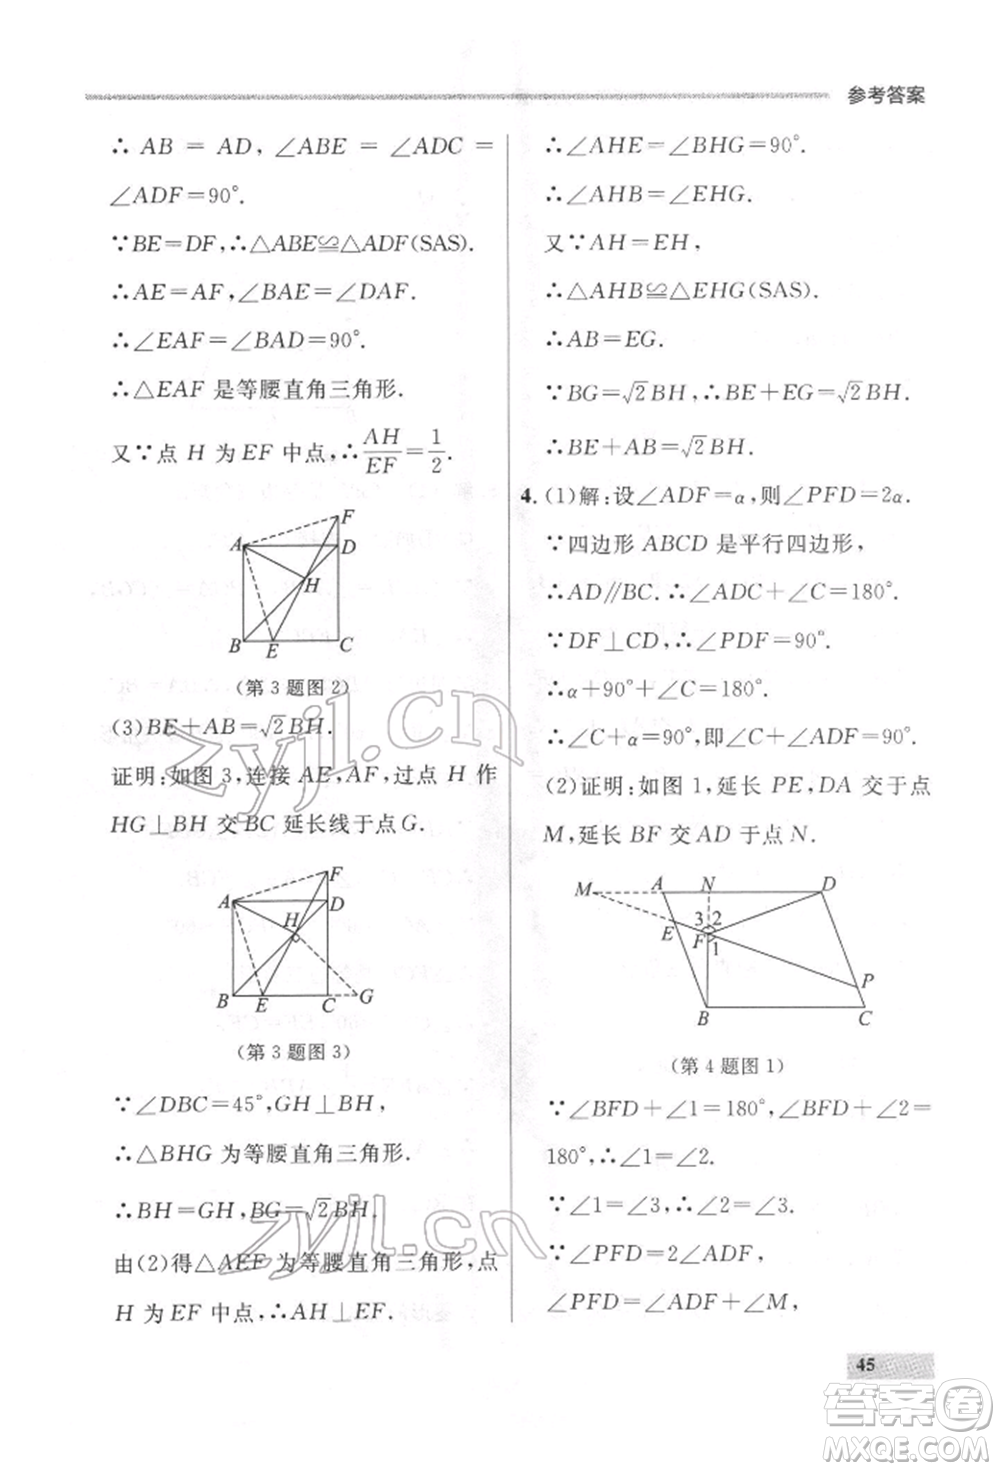 参考答案
∴ AB = AD, ∠ABE = ∠ADC =
∠ADF=90°.
∵BE=DF,∴△ABE≌△ADF(SAS).
∴AE=AF,∠BAE=∠DAF.
∴∠EAF=∠BAD=90°.
∴△EAF 是等腰直角三角形.
又∵点 H 为 EF 中点,∴AH/EF=1/2.
F
A
D
H
B
E
C
(第 3 题图 2)
(3)BE+AB=√2BH.
证明:如图 3,连接 AE,AF,过点 H 作
HG⊥BH 交 BC 延长线于点 G.
F
A
D
H
B
E
C
G
(第 3 题图 3)
∵∠DBC=45°,GH⊥BH,
∴△BHG 为等腰直角三角形.
∴BH=GH,BG=√2BH.
由(2)得△AEF 为等腰直角三角形,点
H 为 EF 中点,∴AH⊥EF.
∴∠AHE=∠BHG=90°.
∴∠AHB=∠EHG.
又∵AH=EH,
∴△AHB≌△EHG(SAS).
∴AB=EG.
∵BG=√2BH,∴BE+EG=√2BH.
∴BE+AB=√2BH.
4.(1)解:设∠ADF=α,则∠PFD=2α.
∵四边形 ABCD 是平行四边形,
∴AD∥BC.∴∠ADC+∠C=180°.
∵DF⊥CD,∴∠PDF=90°.
∴α+90°+∠C=180°.
∴∠C+α=90°,即∠C+∠ADF=90°.
(2)证明:如图 1,延长 PE,DA 交于点
M,延长 BF 交 AD 于点 N.
M
A
N
D
E
3
2
F
1
P
B
C
(第 4 题图 1)
∵∠BFD+∠1=180°,∠BFD+∠2=
180°,∴∠1=∠2.
∵∠1=∠3,∴∠2=∠3.
∵∠PFD=2∠ADF,
∠PFD=∠ADF+∠M,
45
zyjl.cn
zyjl.cn
答案圈
MXQE.COM